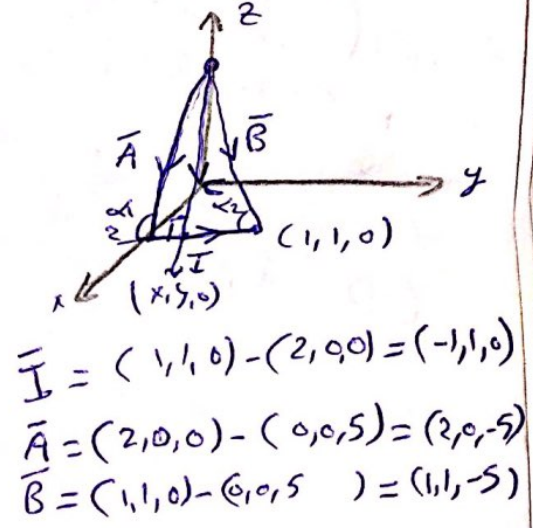 z
A̅
B̅
y
α1
α2
2
(1,1,0)
I̅
x
(x,y,0)
I̅ = (1,1,0)-(2,0,0)=(-1,1,0)
A̅=(2,0,0)-(0,0,5)=(2,0,-5)
B̅=(1,1,0)-(0,0,5 )=(1,1,-5)